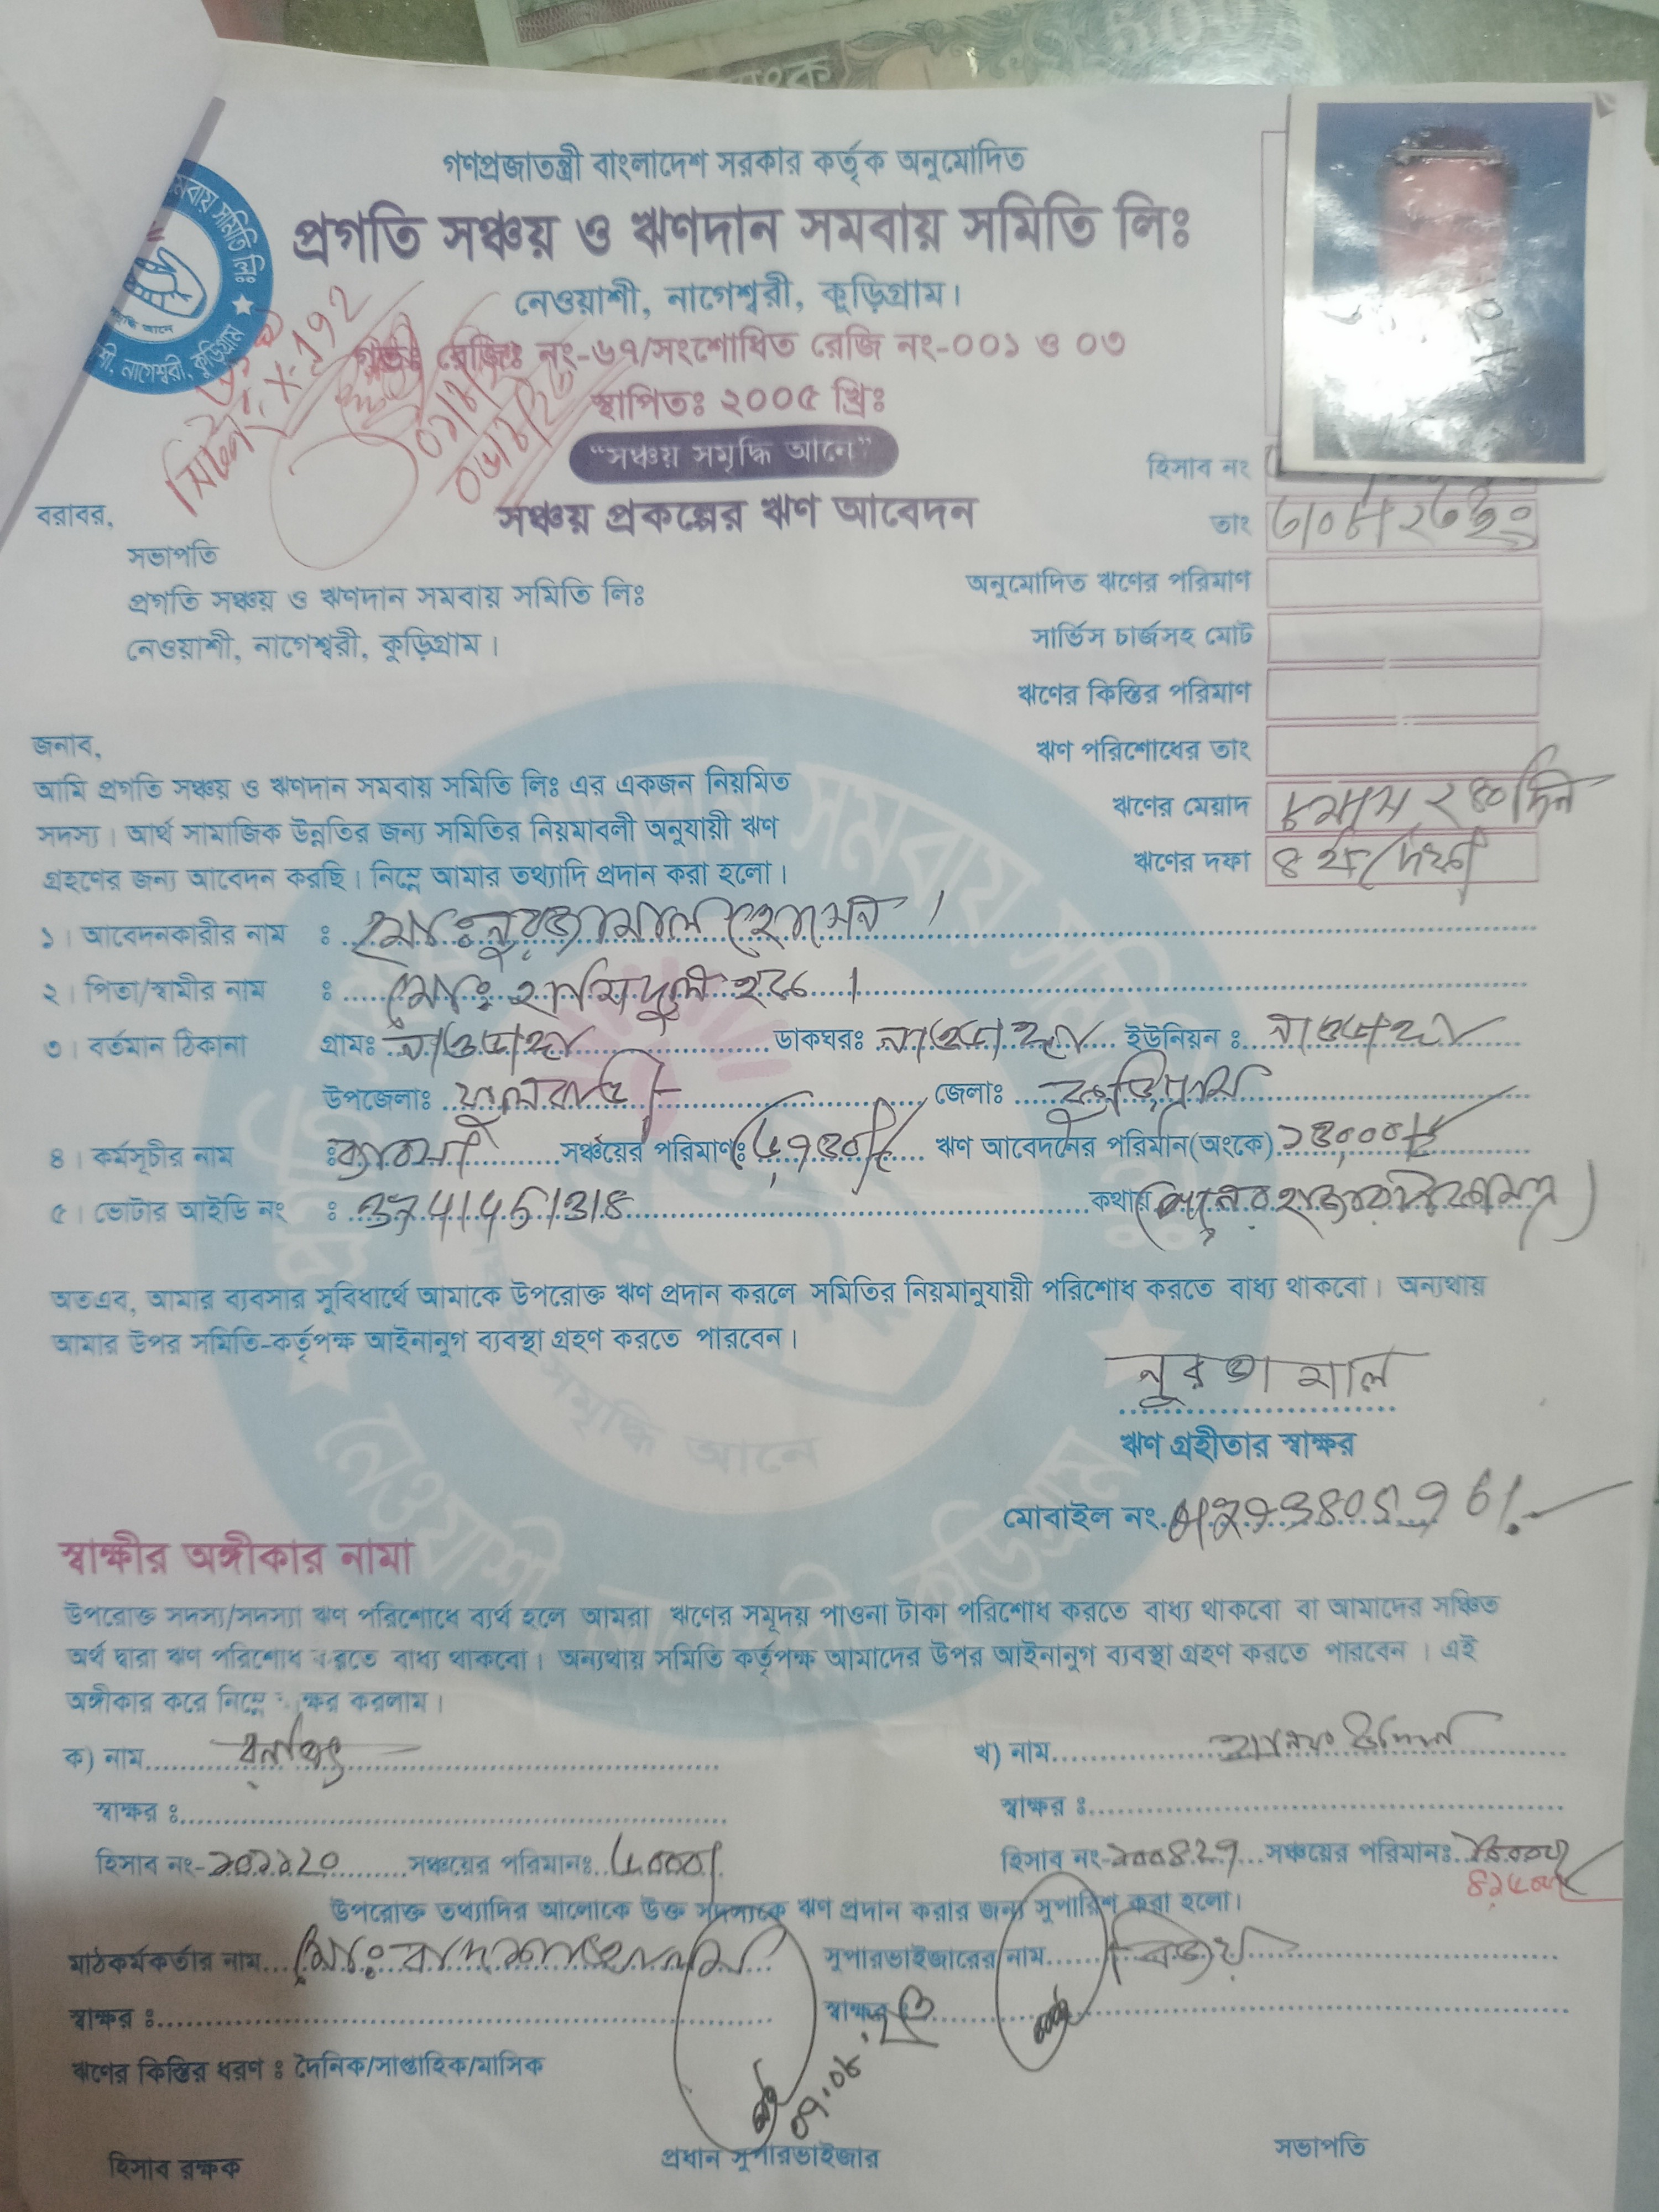 গণপ্রজাতন্ত্রী বাংলাদেশ সরকার কর্তৃক অনুমোদিত
প্রগতি সঞ্চয় ও ঋণদান সমবায় সমিতি লিঃ
নেওয়াশী, নাগেশ্বরী, কুড়িগ্রাম।
রেজিঃ নং-৬৭/সংশোধিত রেজি নং-০০১ ও ০৩
স্থাপিতঃ ২০০৫ খ্রিঃ
“সঞ্চয় সমৃদ্ধি আনে”
সঞ্চয় প্রকল্পের ঋণ আবেদন
হিসাব নং
তাং
অনুমোদিত ঋণের পরিমাণ
সার্ভিস চার্জসহ মোট
ঋণের কিস্তির পরিমাণ
ঋণ পরিশোধের তাং
ঋণের মেয়াদ ৮ মাস ২৪০ দিন
ঋণের দফা ৪র্থ দফা
বরাবর,
সভাপতি
প্রগতি সঞ্চয় ও ঋণদান সমবায় সমিতি লিঃ
নেওয়াশী, নাগেশ্বরী, কুড়িগ্রাম।
জনাব,
আমি প্রগতি সঞ্চয় ও ঋণদান সমবায় সমিতি লিঃ এর একজন নিয়মিত
সদস্য। আর্থ সামাজিক উন্নতির জন্য সমিতির নিয়মাবলী অনুযায়ী ঋণ
গ্রহণের জন্য আবেদন করছি। নিম্নে আমার তথ্যাদি প্রদান করা হলো।
১। আবেদনকারীর নাম : মোঃ নুরজামাল হোসেন।
২। পিতা/স্বামীর নাম : মোঃ হামিদুল হক।
৩। বর্তমান ঠিকানা গ্রামঃ নাওডাঙ্গা ডাকঘরঃ নাওডাঙ্গা ইউনিয়ন : নাওডাঙ্গা
উপজেলাঃ ফুলবাড়ী জেলাঃ কুড়িগ্রাম
৪। কর্মসূচীর নাম : ব্যাবসা সঞ্চয়ের পরিমাণঃ ঋণ আবেদনের পরিমান(অংকে)
৫। ভোটার আইডি নং : কথায়
অতএব, আমার ব্যবসার সুবিধার্থে আমাকে উপরোক্ত ঋণ প্রদান করলে সমিতির নিয়মানুযায়ী পরিশোধ করতে বাধ্য থাকবো। অন্যথায়
আমার উপর সমিতি-কর্তৃপক্ষ আইনানুগ ব্যবস্থা গ্রহণ করতে পারবেন।
নুরজামাল
ঋণ গ্রহীতার স্বাক্ষর
মোবাইল নং
স্বাক্ষীর অঙ্গীকার নামা
উপরোক্ত সদস্য/সদস্যা ঋণ পরিশোধে ব্যর্থ হলে আমরা ঋণের সমূদয় পাওনা টাকা পরিশোধ করতে বাধ্য থাকবো বা আমাদের সঞ্চিত
অর্থ দ্বারা ঋণ পরিশোধ করতে বাধ্য থাকবো। অন্যথায় সমিতি কর্তৃপক্ষ আমাদের উপর আইনানুগ ব্যবস্থা গ্রহণ করতে পারবেন। এই
অঙ্গীকার করে নিম্নে স্বাক্ষর করলাম।
ক) নাম খ) নাম
স্বাক্ষর : স্বাক্ষর :
হিসাব নং- সঞ্চয়ের পরিমানঃ ৫০০০/ হিসাব নং- সঞ্চয়ের পরিমানঃ
উপরোক্ত তথ্যাদির আলোকে উক্ত সদস্যকে ঋণ প্রদান করার জন্য সুপারিশ করা হলো।
মাঠকর্মকর্তার নাম মোঃ সুপারভাইজারের নাম
স্বাক্ষর : স্বাক্ষর :
ঋণের কিস্তির ধরণ : দৈনিক/সাপ্তাহিক/মাসিক
হিসাব রক্ষক প্রধান সুপারভাইজার সভাপতি